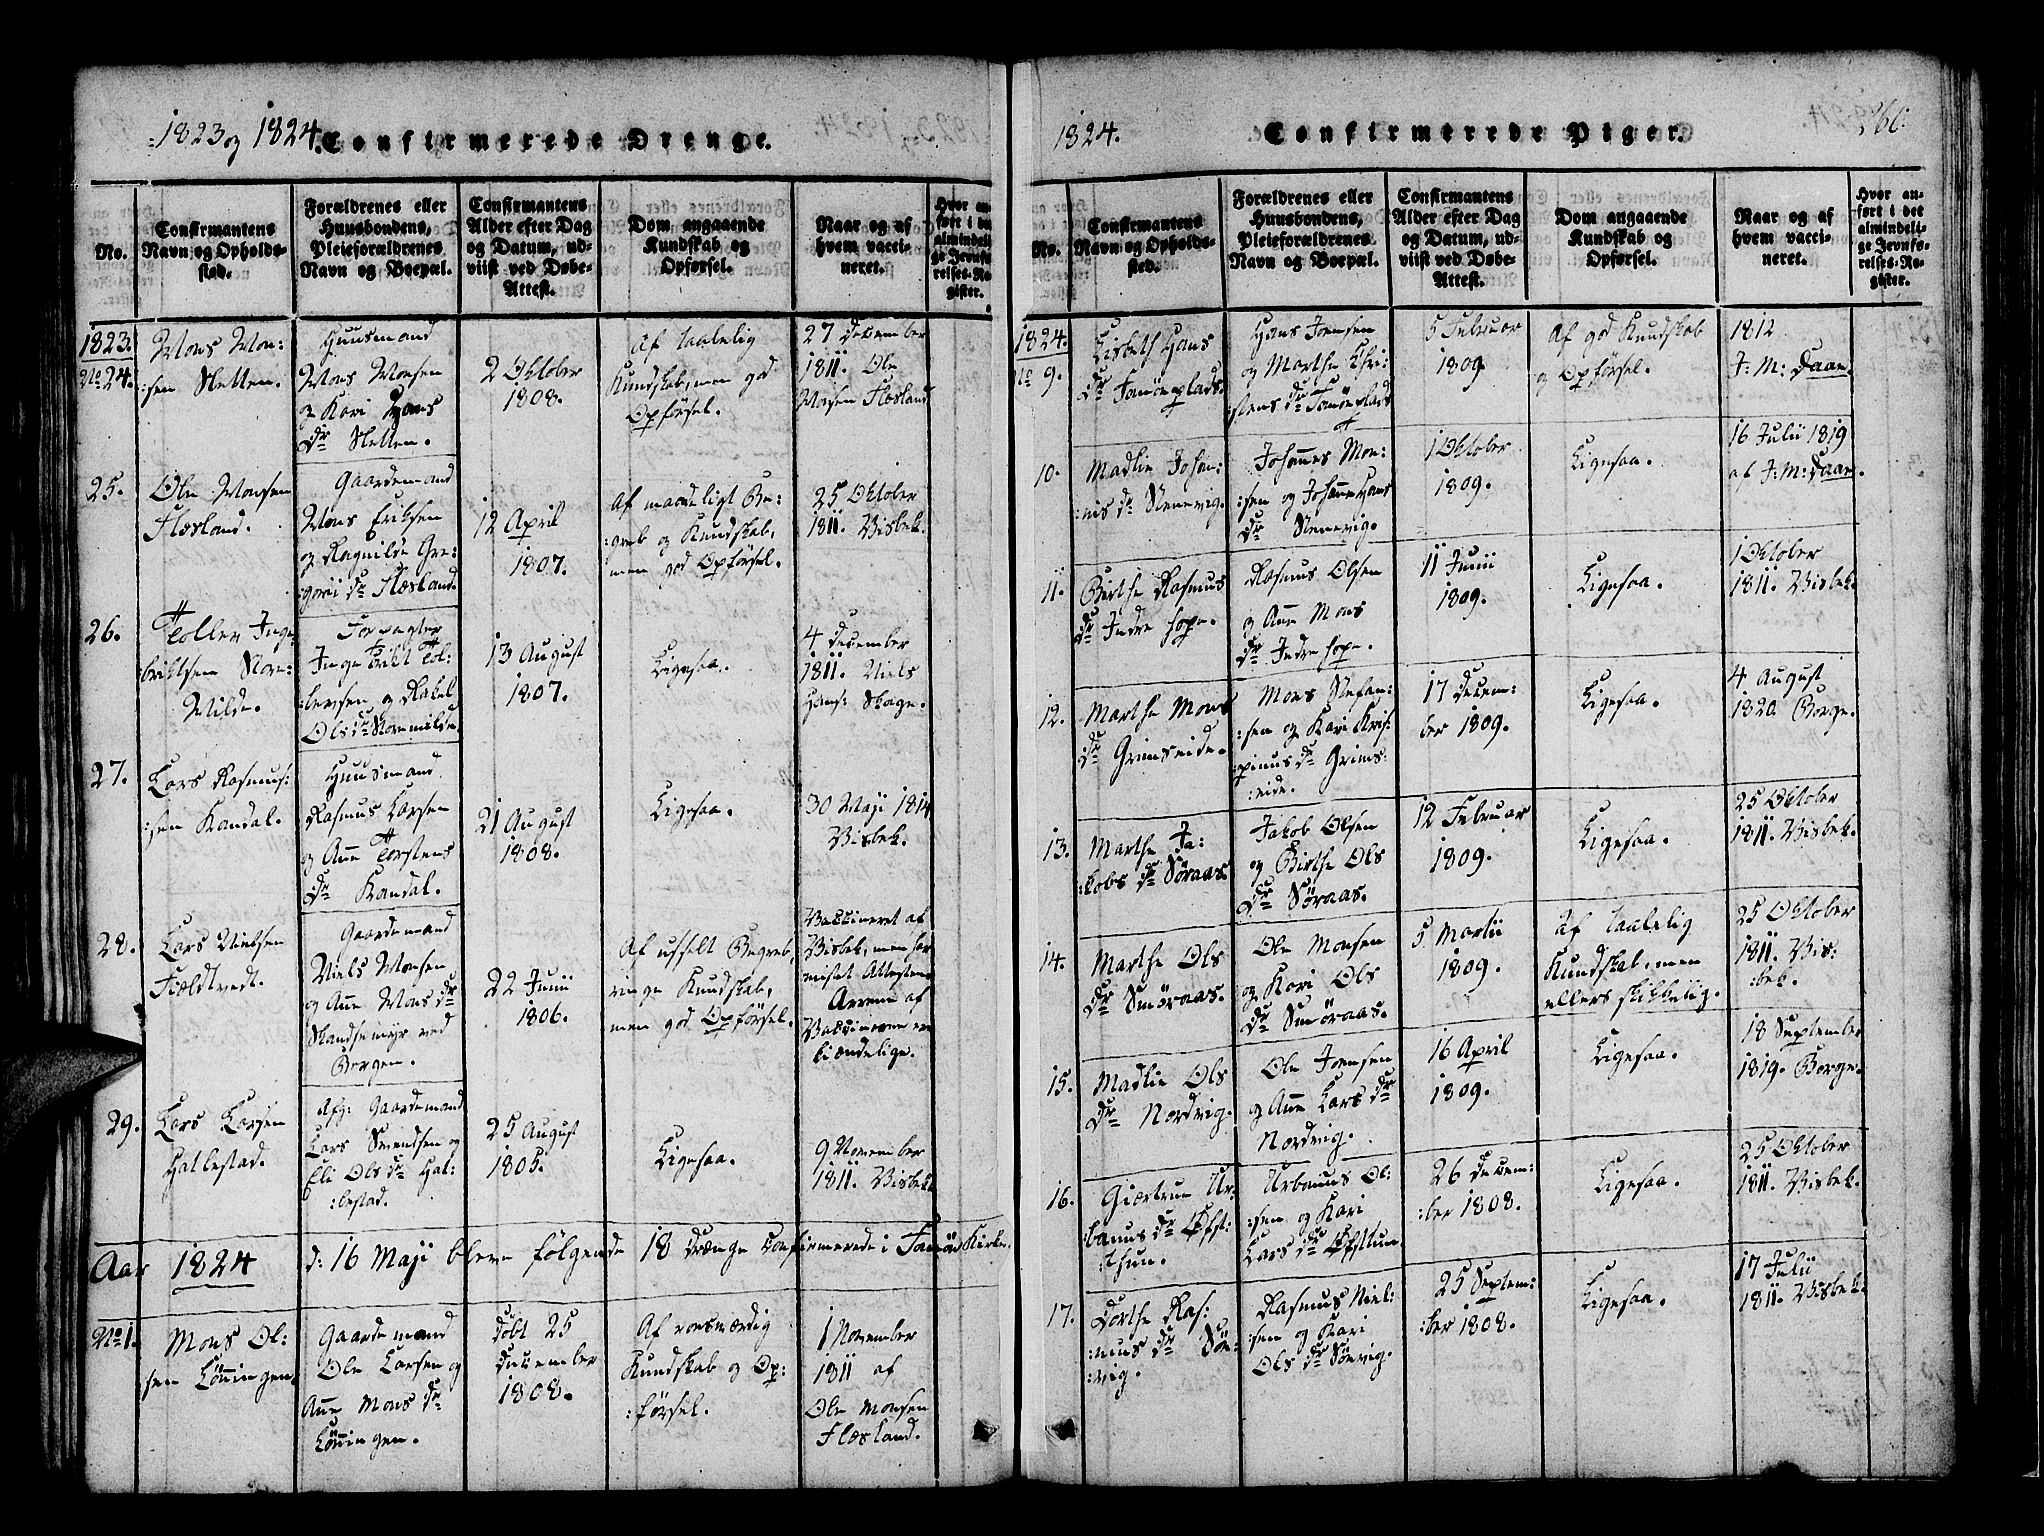 1823 og 1824. Confirmerede Drenge.
No.
Confirmantens Navn og Opholds-sted.
Forældrenes eller Huusbondens, Pleieforældrenes Navn og Boepæl.
Confirmantens Alder efter Dag og Datum, ud-viist ved Døbe-Attest.
Dom angaaende Kundskab og Opførsel.
Naar og af hvem vacci-neret.
Hvor an-ført i det almindeli-ge Jevnfø-relses-Re-gister.
1823.
No 24.
Mons Mon:
:sen Sletten.
Huusmand
Mons Monsen
og Kari Hans
Dr Sletten.
2 Oktober
1808.
Af taalelig
Kundskab, men god
Opførsel.
27 December
1811. Ole
Monsen Flæsland.
25.
Ole Monsen
Flæsland.
Gaardemand
Mons Eriksen
og Ragnilde Gre:
:gorii Dr Flæsland.
12 April
1807.
Af maadeligt Be:
:greb og Kundskab,
men god Opførsel.
25 Oktober
1811. Bisbek.
26.
Toller Inge
briktsen Store
Milde.
Forpagter
Ingebrikt Tol:
:lersen og Rakel
Ols Dr Storemilde.
13 August
1807.
Ligesaa.
4 December
1811. Niels
Hans: Skage.
27.
Lars Rasmus:
:sen Kandal.
Huusmand
Rasmus Larsen
og Ane Torstens
Dr Kandal.
21 August
1808.
Ligesaa.
30 Maji 1814
Bisbek.
28.
Lars Nielsen
Fieldtvedt.
Gaardemand
Niels Monsen
og Ane Mons Dr
Skandsemyr ved
Bergen.
22 Junii
1806.
Af usselt Begreb,
ringe Kundskab,
men god Opførsel.
Vaccineret af
Bisbek, men har
mistet Attesten.
Arrene af
Vaccinerne ere
kiændelige.
29.
Lars Larsen
Hatlestad.
Afg: Gaardemand
Lars Svendsen og
Eli Ols Dr Hat:
:lestad.
25 August
1805.
Ligesaa.
9 November
1811. Bisbek.
Aar 1824 d: 16 Maji bleve følgende 18 Drænge confirmerede i Fanøe Kirke.
No 1.
Mons Ol:
:sen Lønningen.
Gaardemand
Ole Larsen og
Ane Mons Dr
Lønningen.
Døbt 25
December
1808.
Af roesværdig
Kundskab og Op:
:førsel.
1 November
1811 af
Ole Monsen
Flæsland.
1824. Confirmerede Piger. 260.
No.
Confirmantens Navn og Opholds-sted.
Forældrenes eller Huusbondens, Pleieforældrenes Navn og Boepæl.
Confirmantens Alder efter Dag og Datum, ud-viist ved Døbe-Attest.
Dom angaaende Kundskab og Opførsel.
Naar og af hvem vacci-neret.
Hvor an-ført i det almindeli-ge Jevnfø-relses-Re-gister.
1824.
No 9.
Lisbeth Hans
Dr Fanøeplads.
Hans Joensen
og Marthe Chri:
:stens Dr Fanøeplads
5 Februar
1809.
Af god Kundskab
og Opførsel.
1812
J: M: Daae.
10.
Madlie Johan:
:nis Dr Steenevig.
Johannes Mon:
:sen og Johanne Hans
Dr Steenevig.
1 Oktober
1809.
Ligesaa.
16 Julii 1819
af J: M: Daae.
11.
Birthe Rasmus
Dr Indre Hope.
Rasmus Olsen
og Ane Mons
Dr Indre Hope.
11 Junii
1809.
Ligesaa.
1 Oktober
1811. Bisbek.
12.
Marthe Mons
Dr Grimseide.
Mons Stefan:
:sen og Kari Kris:
:pinus Dr Grims:
:eide.
17 Decem:
ber 1809.
Ligesaa.
4 August
1820 Borge.
13.
Marthe Ja:
:kobs Dr Søraas.
Jakob Olsen
og Birthe Ols
Dr Søraas.
12 Februar
1809.
Ligesaa.
25 Oktober
1811. Bisbek.
14.
Marthe Ols
Dr Smøraas.
Ole Monsen
og Kari Ols
Dr Smøraas.
5 Martii
1809.
Af taalelig
Kundskab, men
ellers skikkelig.
25 Oktober
1811. Bis:
:bek.
15.
Madlie Ols
Dr Nordvig.
Ole Joensen
og Ane Lars Dr
Nordvig.
16 April
1809.
Ligesaa.
18 September
1819. Borge.
16.
Giertrue Ur:
:banus Dr Øfst:
:thun.
Urbanus Ol:
:sen og Kari
Lars Dr Øfsttun.
26 Decem:
:ber 1808.
Ligesaa.
25 Oktober
1811. Bisbek.
17.
Dorthe Ras:
:mus Dr Søre:
:vig.
Rasmus Niel:
:sen og Kari
Ols Dr Sørevig.
25 Septem:
:ber 1808.
Ligesaa.
17 Julii
1811. Bisbek.